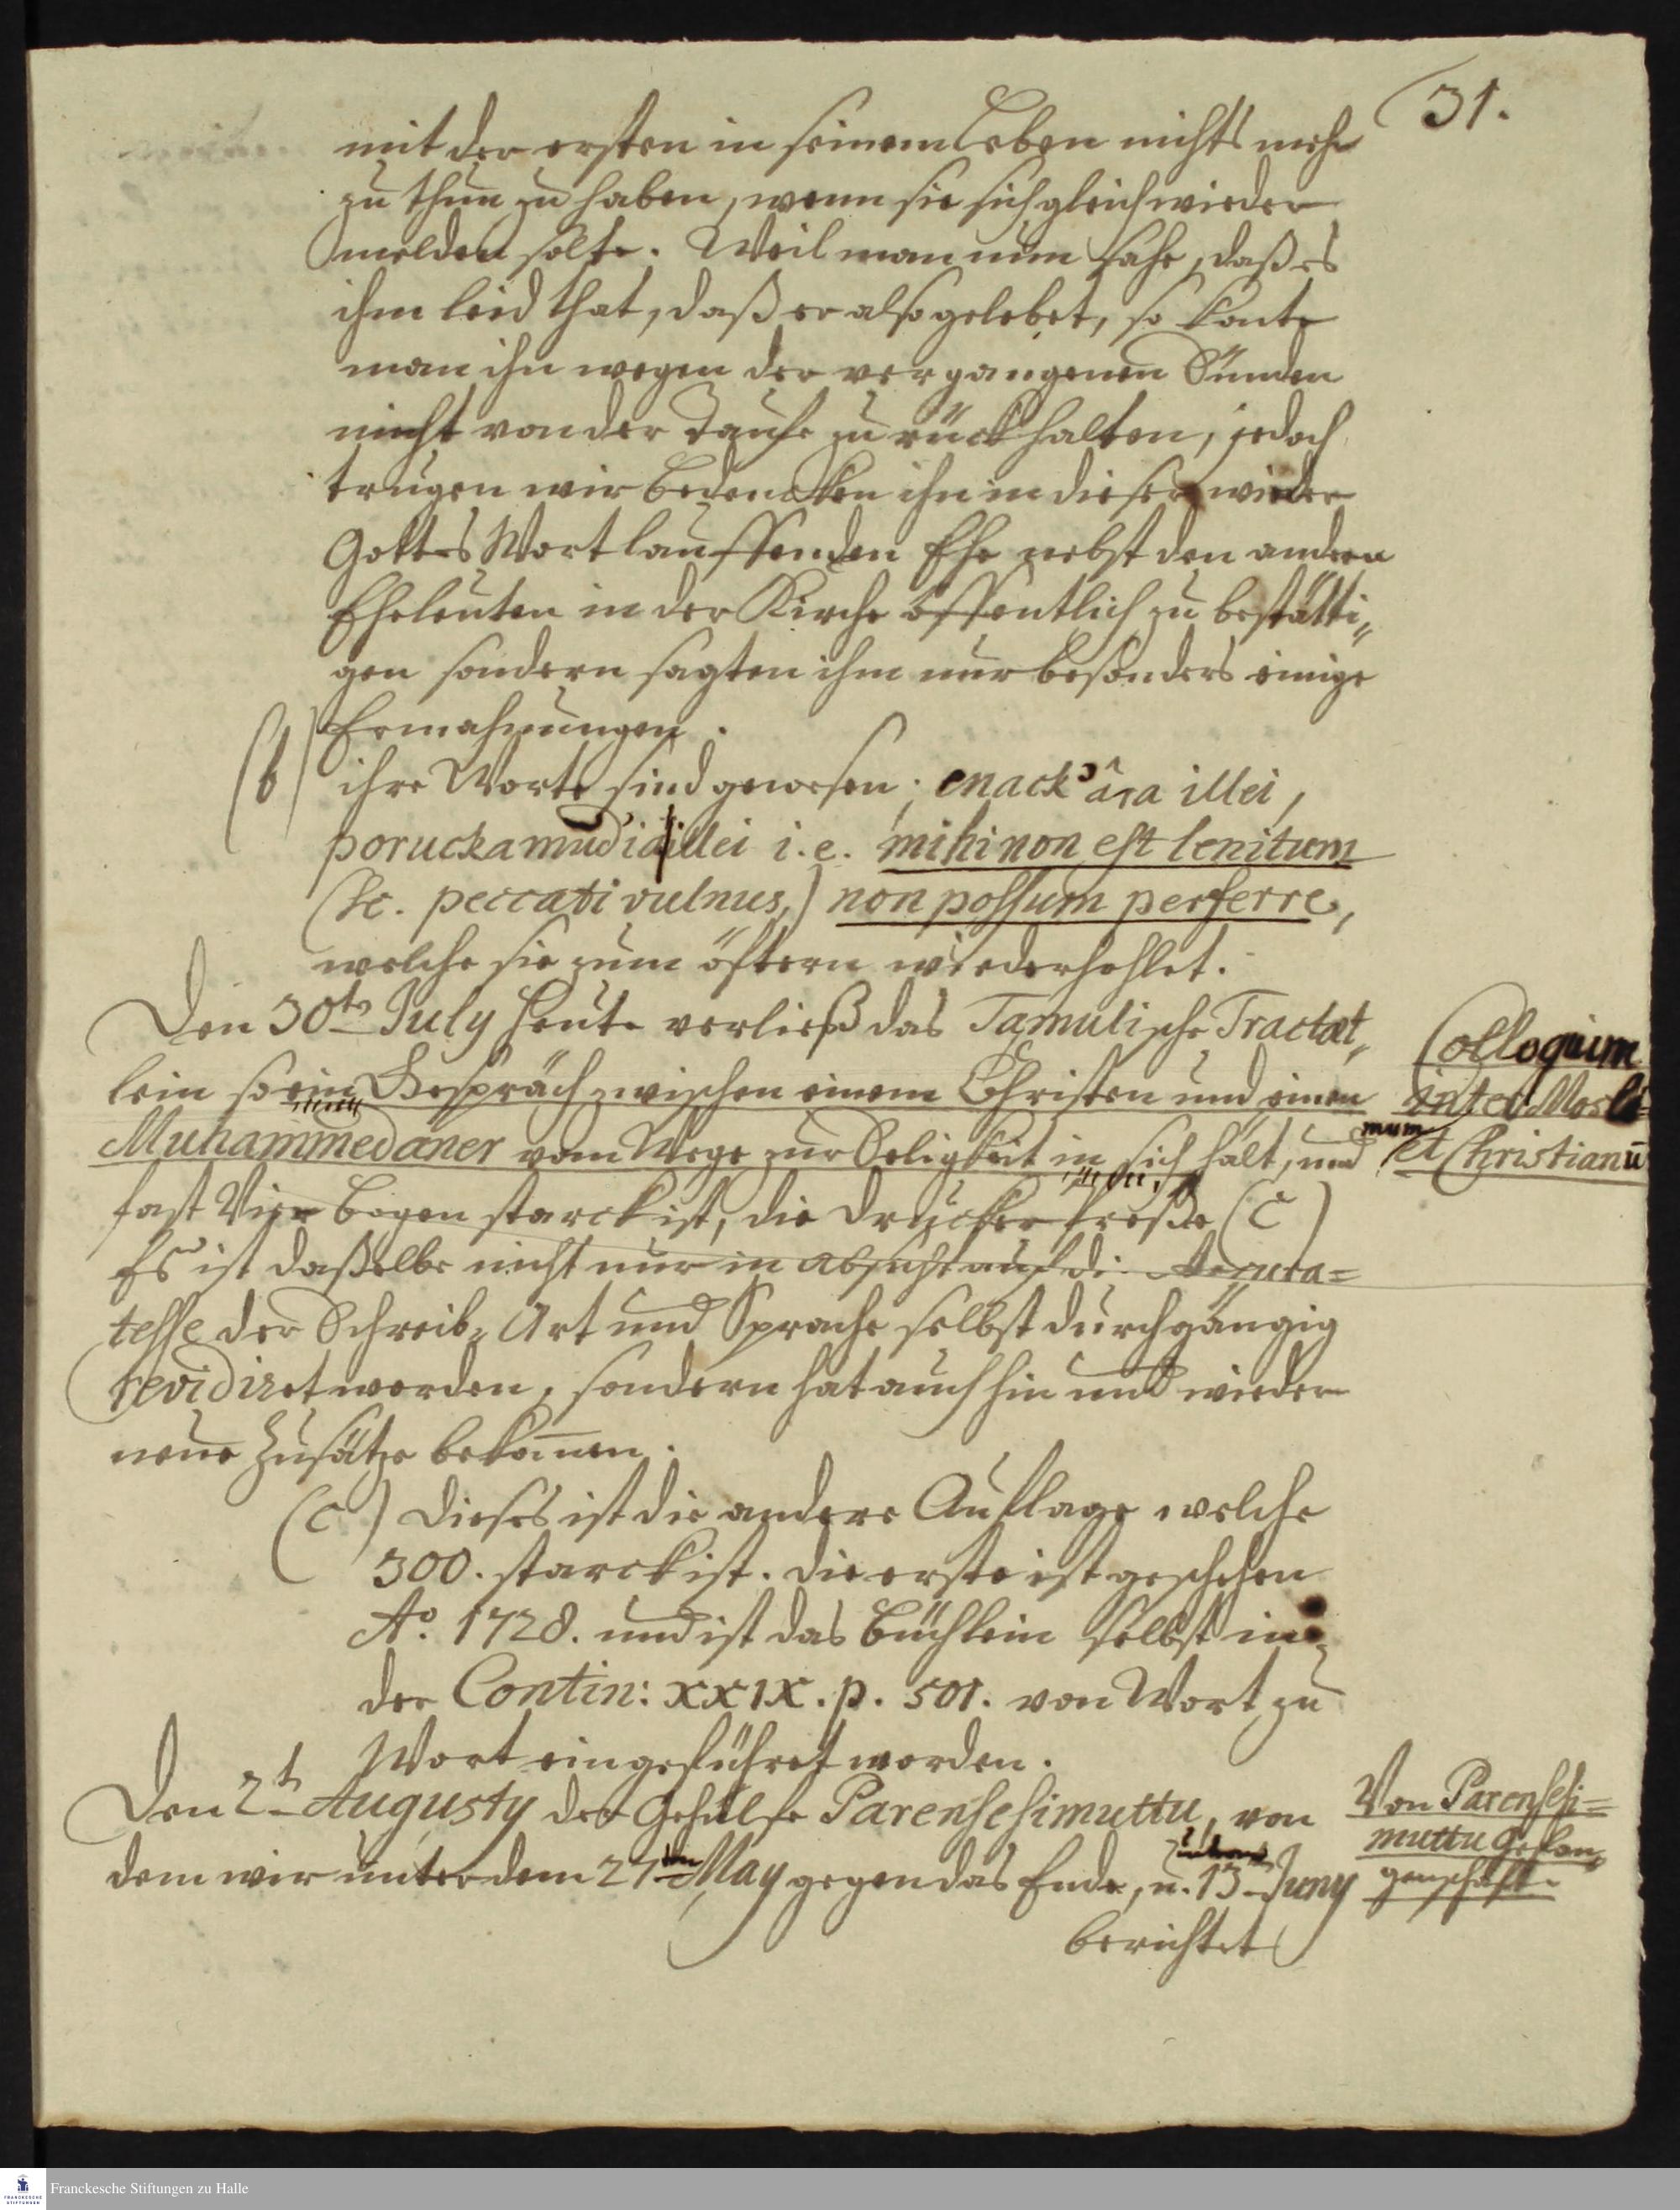 31.
mit der ersten in seinem Leben nichts mehr
zu thun zu haben, wenn sie sich gleich wieder
melden solte. Weil man nun sahe, daß es
ihm leid that, daß er also gelebet, so konte
man ihn wegen der vergangenen Sünden
nicht von der Taufe zurück halten, jedoch
trugen wir bedencken ihn in dieser wieder
Gottes Wort lauffenden Ehe nebst den andern
Eheleuten in der Kirche öffentlich zu bestätti„
gen sondern sagten ihm nur besonders einige
Ermahnungen.
(b) ihre Worte sind gewesen: enack âra illei,
poruckamudia illei i.e. mihi non est lenitum
(sc. peccati vulnus,) non possum perferre,
welche sie zum öftern wiederhohlet.
Den 30t. July heute verließ das Tamulische Tractæt„
lein so ein Gespräch zwischen einem Christen und einen
Muhammedaner vom Wege zur Seligkeit in sich hält, und
fast Vier bogen starck ist, die Drucker presse (c)
Es ist daßelbe nicht nur in Absicht auf die Accura=
tesse der Schreib„ Art und Sprache selbst durchgängig
revidiret worden, sondern hat auch hin und wieder
neue Zusätze bekom̅en.
Colloquium
inter Mosle=
mum
et Christianū
(c) dieses ist die andere Auflage welche
300. starck ist. die erste ist geschehen
Ao. 1728. und ist das büchlein selbst in
der Contin: XXIX. p. 501. von Wort zu
Wort eingeführet worden.
Den 2t Augusty der Gehülfe Parensesimuttu, von
dem wir unter dem 27ten May gegen das Ende, u. 13 Juny
berichtet
Von Parensesi=
muttu Gefan„
genschaft.
Franckesche Stiftungen zu Halle